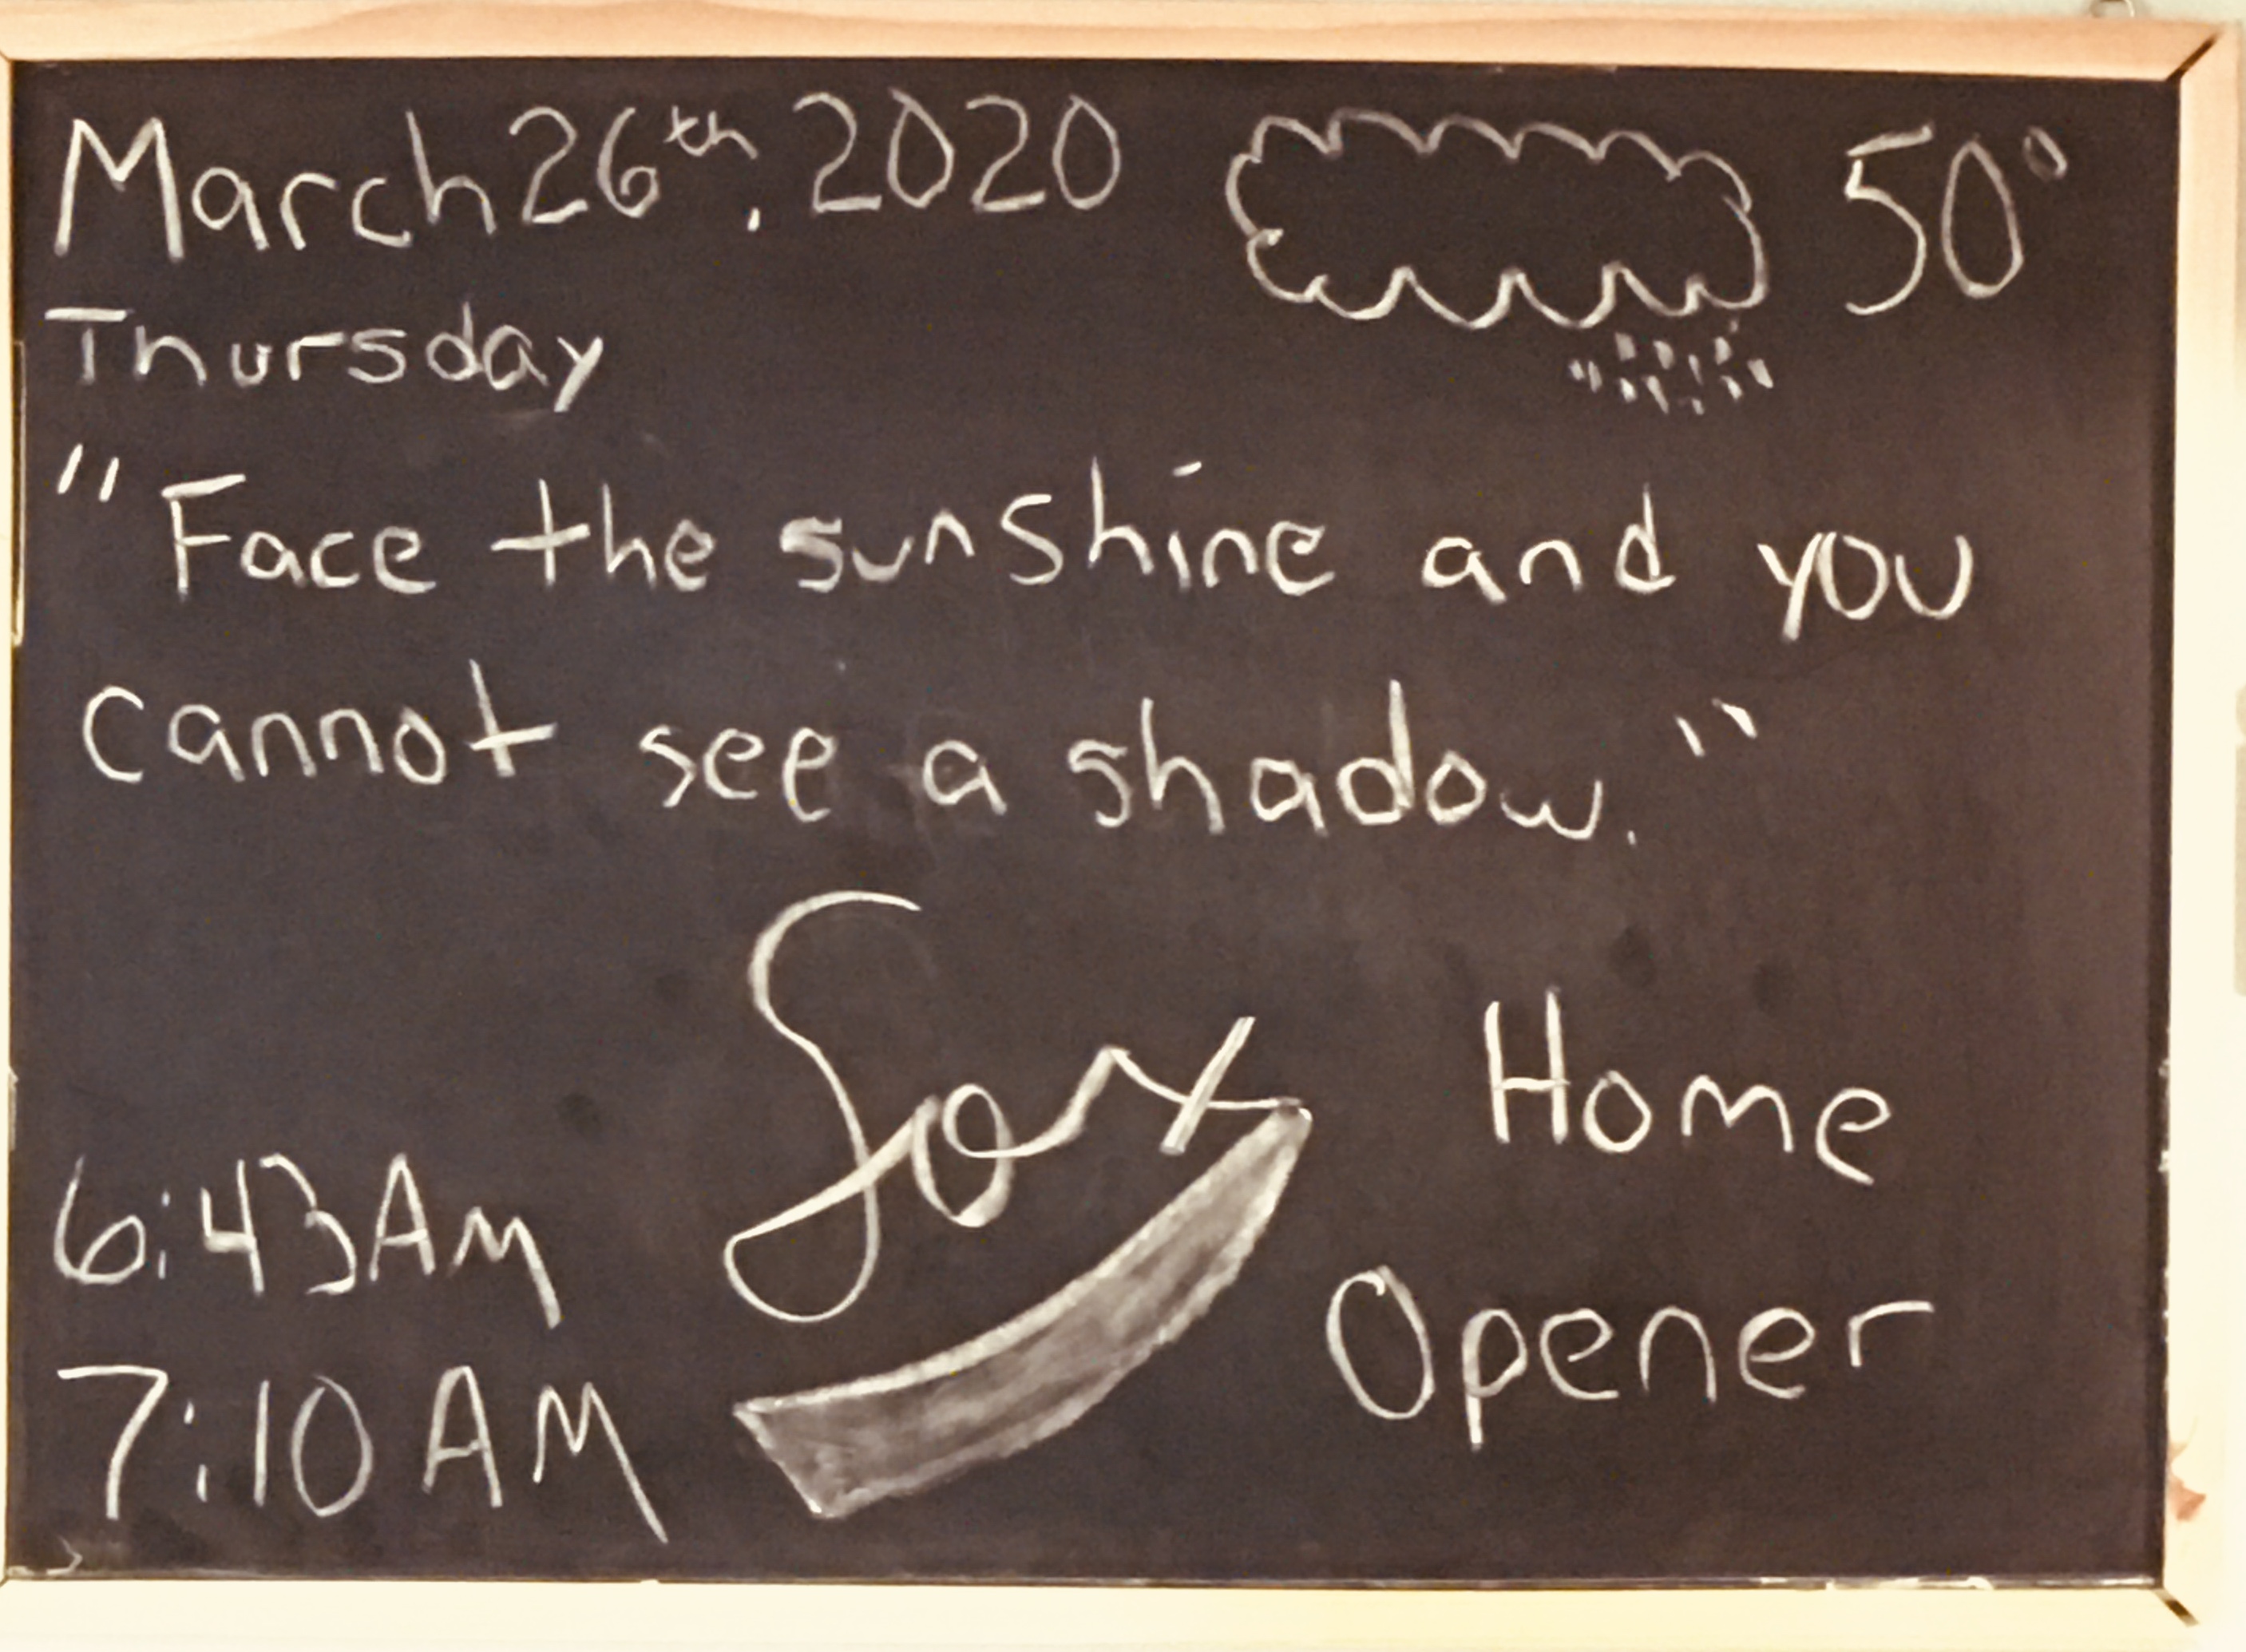 March 26th, 2020 50°
Thursday
"Face the sunshine and you
cannot see a shadow."
Sox Home
Opener
6:43AM
7:10AM